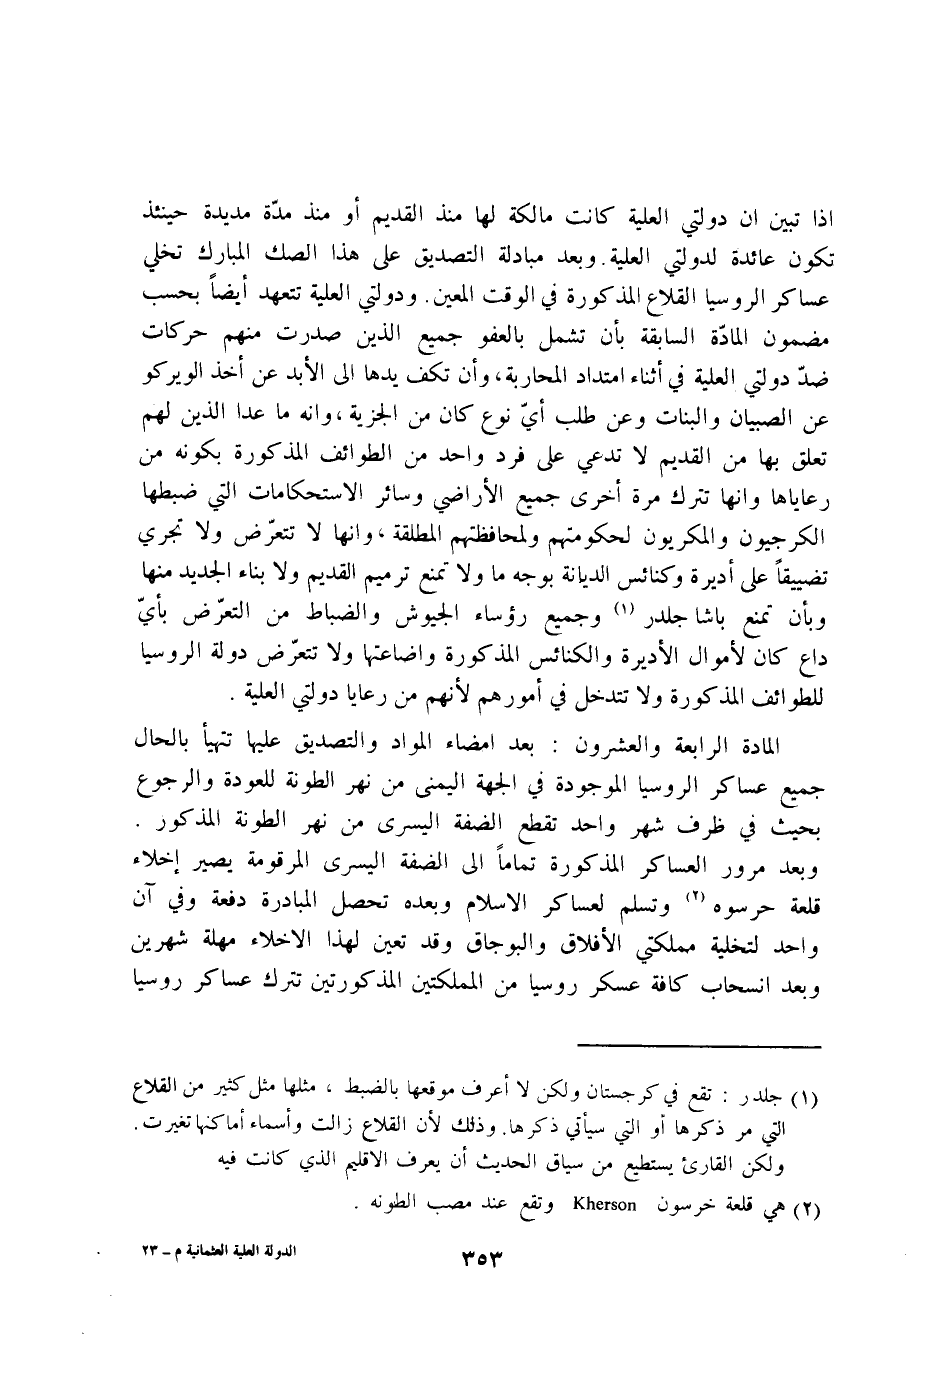 اذا تبين ان دولتي العلية كانت مالكة لها منذ القديم أو منذ مدّة مديدة حينئذ
تكون عائدة لدولتي العلية. وبعد مبادلة التصديق على هذا الصك المبارك تخلي
عساكر الروسيا القلاع المذكورة في الوقت المعين. ودولتي العلية تتعهد أيضاً بحسب
مضمون المادّة السابقة بأن تشمل بالعفو جميع الذين صدرت منهم حركات
ضدّ دولتي العلية في أثناء امتداد المحاربة، وأن تكف يدها الى الأبد عن أخذ الويركو
عن الصبيان والبنات وعن طلب أيّ نوع كان من الجزية، وانه ما عدا الذين لهم
تعلق بها من القديم لا تدعي على فرد واحد من الطوائف المذكورة بكونه من
رعاياها وانها تترك مرة أخرى جميع الأراضي وسائر الاستحكامات التي ضبطها
الكرجيون والمكريون لحكومتهم ولمحافظتهم المطلقة، وانها لا تتعرّض ولا تجري
تضييقاً على أديرة وكنائس الديانة بوجه ما ولا تمنع ترميم القديم ولا بناء الجديد منها
وبأن تمنع باشا جلدر (١) وجميع رؤساء الجيوش والضباط من التعرّض بأيّ
داع كان لأموال الأديرة والكنائس المذكورة واضاعتها ولا تتعرّض دولة الروسيا
للطوائف المذكورة ولا تتدخل في أمورهم لأنهم من رعايا دولتي العلية .
المادة الرابعة والعشرون : بعد امضاء المواد والتصديق عليها تتهيأ بالحال
جميع عساكر الروسيا الموجودة في الجهة اليمنى من نهر الطونة للعودة والرجوع
بحيث في ظرف شهر واحد تقطع الضفة اليسرى من نهر الطونة المذكور .
وبعد مرور العساكر المذكورة تماماً الى الضفة اليسرى المرقومة يصير إخلاء
قلعة حرسوه (٢) وتسلم لعساكر الاسلام وبعده تحصل المبادرة دفعة وفي آن
واحد لتخلية مملكتي الأفلاق والبوجاق وقد تعين لهذا الاخلاء مهلة شهرين
وبعد انسحاب كافة عسكر روسيا من المملكتين المذكورتين تترك عساكر روسيا
(١) جلدر : تقع في كرجستان ولكن لا أعرف موقعها بالضبط ، مثلها مثل كثير من القلاع
التي مر ذكرها أو التي سيأتي ذكرها. وذلك لأن القلاع زالت وأسماء أماكنها تغيرت.
ولكن القارئ يستطيع من سياق الحديث أن يعرف الاقليم الذي كانت فيه
(٢) هي قلعة خرسون Kherson وتقع عند مصب الطونه .
٣٥٣
الدولة العلية العثمانية م - ٢٣